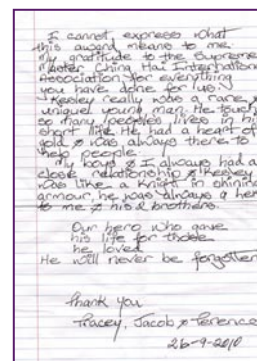 I cannot express what
this award means to me.
My gratitude to the Supreme
Master Ching Hai Internation
Association for everything
you have done for us.
Kesley really was a rare &
unique young man. He touch
so many peoples lives in his
short life. He had a heart of
gold & was always there to
help people.
My boys & I always had a
close relationship & Kesley
was like a knight in shining
armour, he was always a her
to me & his 2 brothers.
Our hero who gave
his life for those
he loved
He will never be forgotten
Thank you
Tracey, Jacob & Terence
26-9-2010